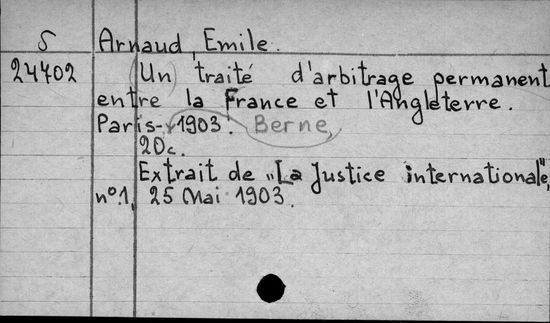 S Arnaud, Emile.
24402 (Un) traité d'arbitrage permanent
entre la France et l'Angleterre.
Paris- 1903. Berne,
20c.
Extrait de "La Justice internationale",
n°.1, 25 Mai 1903.